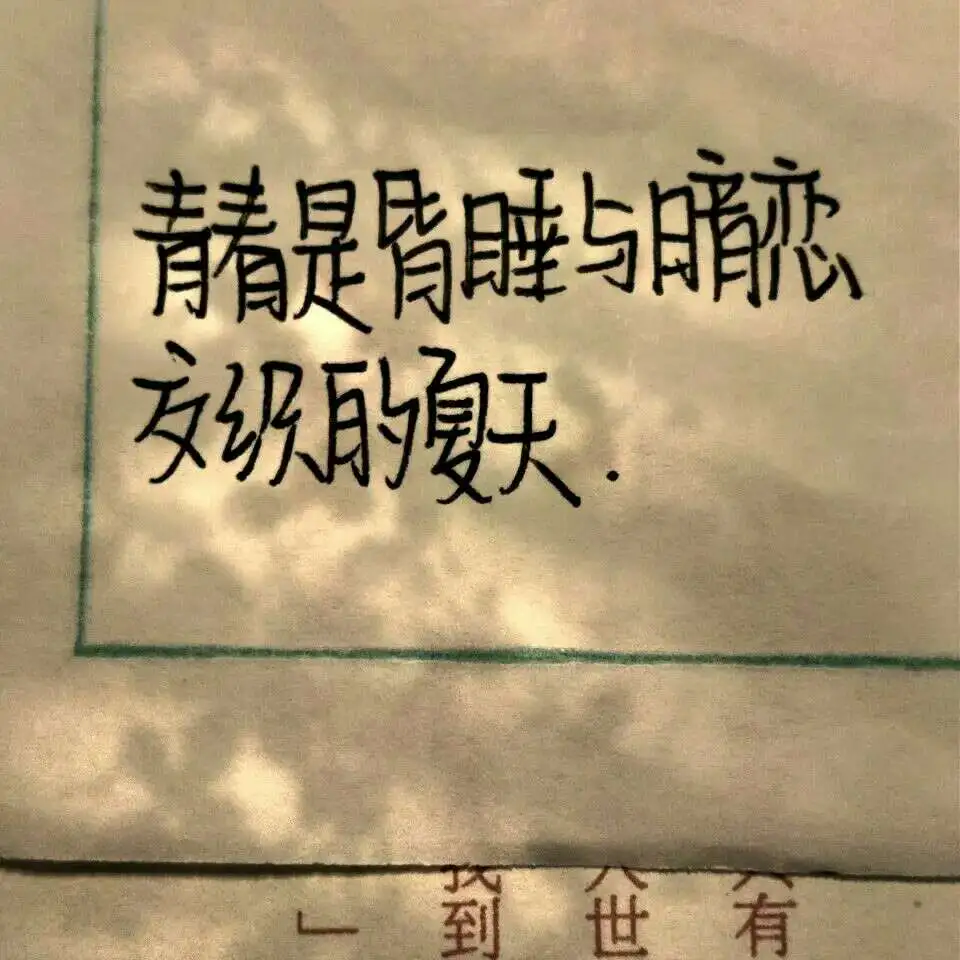 青春是昏睡与暗恋
交织的夏天.
」
到
世
有